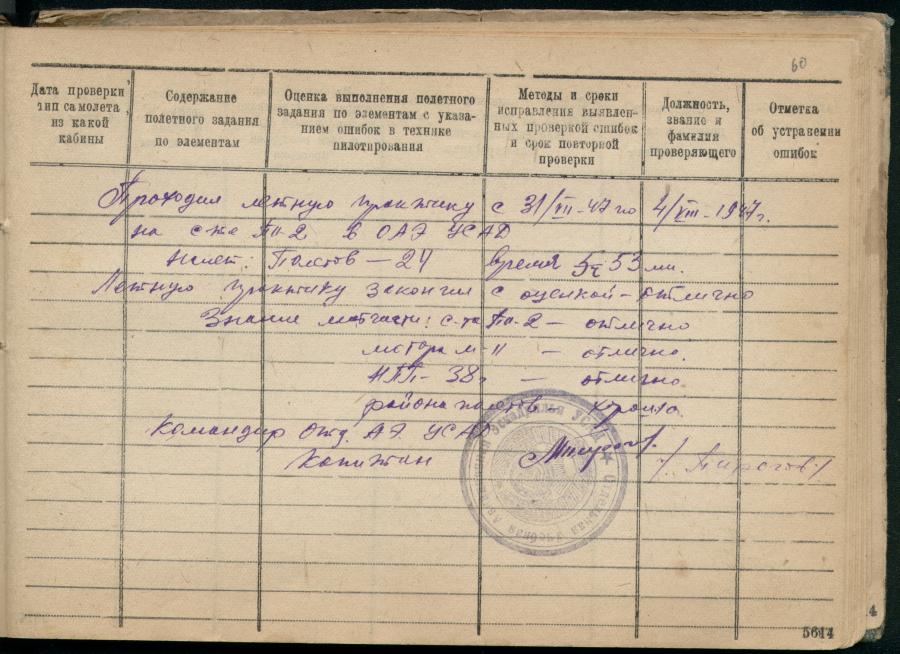 60
Дата проверки, тип самолета, из какой кабины
Содержание полетного задания по элементам
Оценка выполнения полетного задания по элементам с указанием ошибок в технике пилотирования
Методы и сроки исправления выявленных проверкой ошибок и срок повторной проверки
Должность, звание и фамилия проверяющего
Отметка об устранении ошибок
Проходил летную практику с 31/VII-47 по 4/VIII-1947г.
на с-те По-2 в ОАЭ УСАД
Налет: Полетов – 24 время 5ч 53 мин.
Летную практику закончил с оценкой – отлично
Знание матчасти: с-та По-2 – отлично
мотора м-11 – отлично.
НПП-38г – отлично.
района полетов – хорошо.
Командир Отд. АЭ УСАД
Капитан /Пирогов/
Эскадрилья УСАД ★ Отдельная Учебная
5614